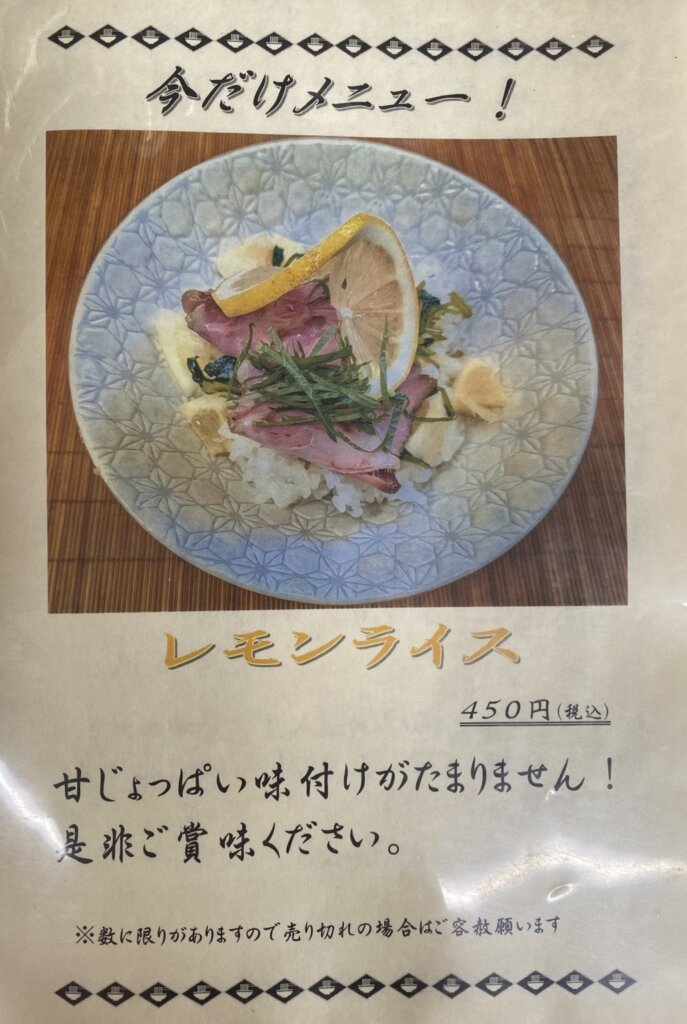 今だけメニュー！
レモンライス
450円(税込)
甘じょっぱい味付けがたまりません！
是非ご賞味ください。
※数に限りがありますので売り切れの場合はご容赦願います